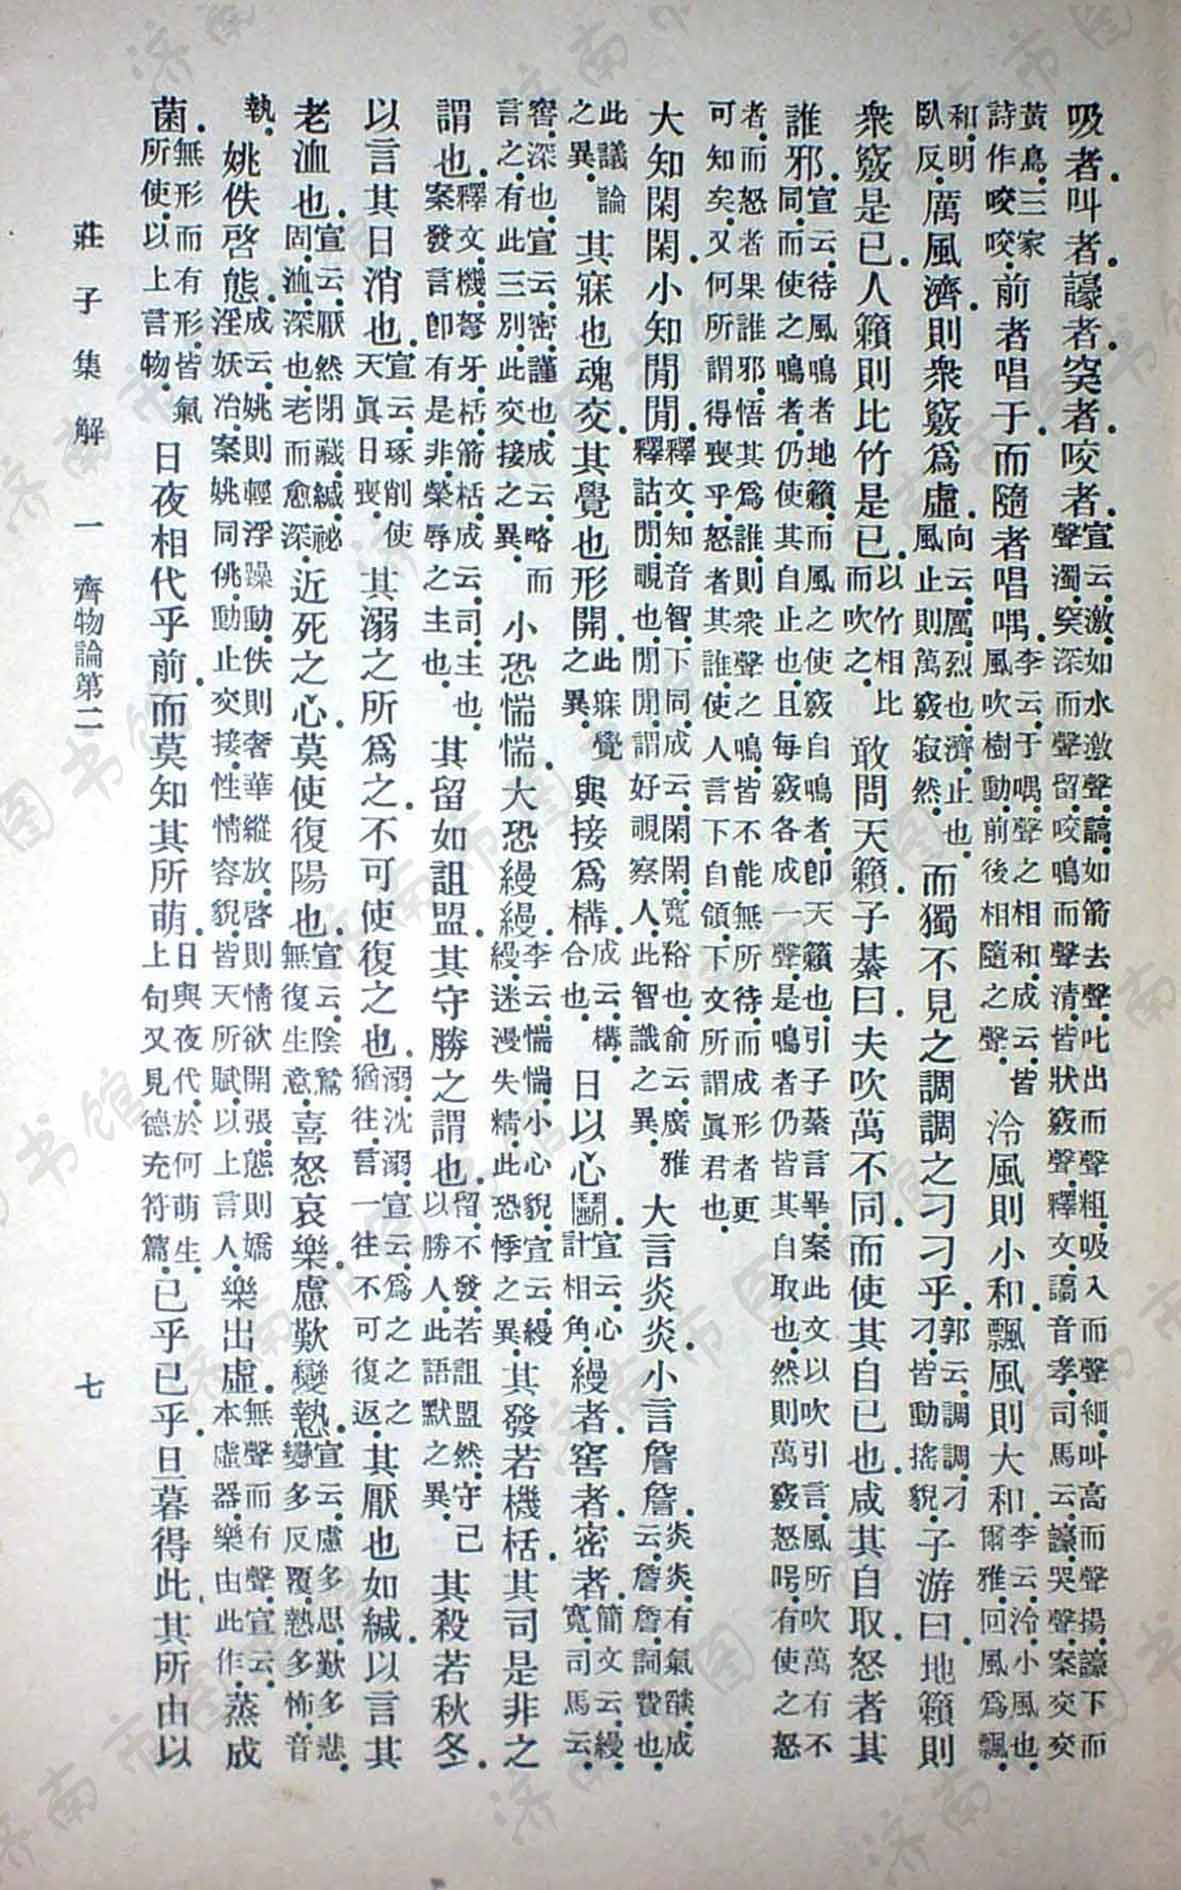 吸者.叫者.譹者.宎者.咬者.宣云.激.如水激聲.謞.如箭去聲.叱出而聲粗.吸入而聲細.叫高而聲揚.譹下而聲濁.宎深而聲留.咬鳴而聲清.皆狀竅聲.釋文.謞音孝.司馬云.譹.哭聲.案交交
黃鳥.三家詩作咬咬.前者唱于.而隨者唱喁.李云.于喁.聲之相和.成云.皆風吹樹動.前後相隨之聲.泠風則小和.飄風則大和.李云.泠.小風也.爾雅.回風爲飄.
和.明臥反.厲風濟.則衆竅爲虛.向云.厲.烈也.濟.止也.風止則萬竅寂然.而獨不見之調調之刁刁乎.郭云.調調刁刁.皆動搖貌.子游曰.地籟則
衆竅是已.人籟則比竹是已.以竹相比而吹之.敢問天籟.子綦曰.夫吹萬不同.而使其自已也.咸其自取.怒者其
誰邪.宣云.待風鳴者地籟.而風之使竅自鳴者.卽天籟也.引子綦言畢.案此文以吹引言.風所吹萬有不同.而使之鳴者.仍使其自止也.且每竅各成一聲.是鳴者仍皆其自取也.然則萬竅怒呺.有使之怒
者.而怒者果誰邪.悟其爲誰.則衆聲之鳴.皆不能無所待而成形者更可知矣.又何所謂得喪乎.怒者其誰.使人言下自領.下文所謂眞君也.
大知閑閑.小知閒閒.釋文.知音智.下同.成云.閑閑.寬裕也.俞云.廣雅釋詁.閒.覗也.閒閒.謂好覗察人.此智識之異.大言炎炎.小言詹詹.炎炎.有氣燄.成云.詹詹.詞費也.
此議論之異.其寐也魂交.其覺也形開.此寐覺之異.與接爲構.成云.構.合也.日以心鬭.宣云.心計相角.縵者.窖者.密者.簡文云.縵.寬.司馬云.
窖.深也.宣云.密.謹也.成云.略而言之.有此三別.此交接之異.小恐惴惴.大恐縵縵.李云.惴惴.小心貌.宣云.縵縵.迷漫失精.此恐悸之異.其發若機栝.其司是非之
謂也.釋文.機.弩牙.栝.箭栝.成云.司.主也.案發言卽有是非榮辱之主也.其留如詛盟.其守勝之謂也.留.不發.若詛盟然.守己以勝人.此語默之異.其殺若秋冬.
以言其日消也.宣云.琢削.使天眞日喪.其溺之所爲之.不可使復之也.溺.沈溺.宣云.爲之之之猶往.言一往不可復返.其厭也如緘.以言其
老洫也.宣云.厭然閉藏.緘.祕固.洫.深也.老而愈深.近死之心.莫使復陽也.宣云.陰鷙無復生意.喜怒哀樂.慮歎變慹.宣云.慮多思.歎多悲.變多反覆.慹多怖.音
執.姚佚啓態.成云.姚則輕浮躁動.佚則奢華縱放.啓則情欲開張.態則嬌淫妖冶.案姚同佻.動止交接.性情容貌.皆天所賦.以上言人.樂出虛.無聲而有聲.宣云.本虛器.樂由此作.蒸成
菌.無形而有形.皆氣所使.以上言物.日夜相代乎前.而莫知其所萌.日與夜代.於何萌生.上句又見德充符篇.已乎已乎.旦暮得此.其所由以
莊子集解 一 齊物論第二 七